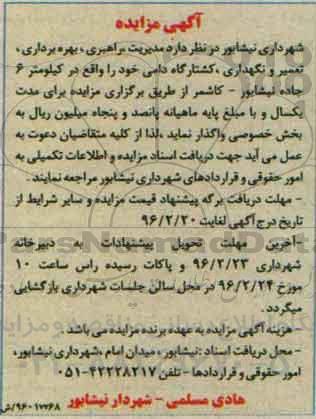 آگهی مزایده
شهرداری نیشابور در نظر دارد مدیریت ،راهبری ، بهره برداری ،
تعمیر و نگهداری ،کشتارگاه دامی خود را واقع در کیلومتر ۶
جاده نیشابور - کاشمر از طریق برگزاری مزایده برای مدت
یکسال و با مبلغ پایه ماهیانه پانصد و پنجاه میلیون ریال به
بخش خصوصی واگذار نماید ،لذا از کلیه متقاضیان دعوت به
عمل می آید جهت دریافت اسناد مزایده و اطلاعات تکمیلی به
امور حقوقی و قراردادهای شهرداری نیشابور مراجعه نمایند .
- مهلت دریافت برگه پیشنهاد قیمت مزایده و سایر شرایط از
تاریخ درج آگهی لغایت ۹۶/۲/۲۰
-آخرین مهلت تحویل پیشنهادات به دبیرخانه
شهرداری ۹۶/۲/۲۳ و پاکات رسیده راس ساعت ۱۰
مورخ ۹۶/۲/۲۴ در محل سالن جلسات شهرداری بازگشایی
میگردد .
- هزینه آگهی مزایده به عهده برنده مزایده می باشد
- محل دریافت اسناد :نیشابور ، میدان امام ،شهرداری نیشابور،
امور حقوقی و قراردادها - تلفن ۴۲۲۲۸۲۱۷-۰۵۱
هادی مسلمی - شهردار نیشابور
۹۶۰۱۷۲۶۸/ش